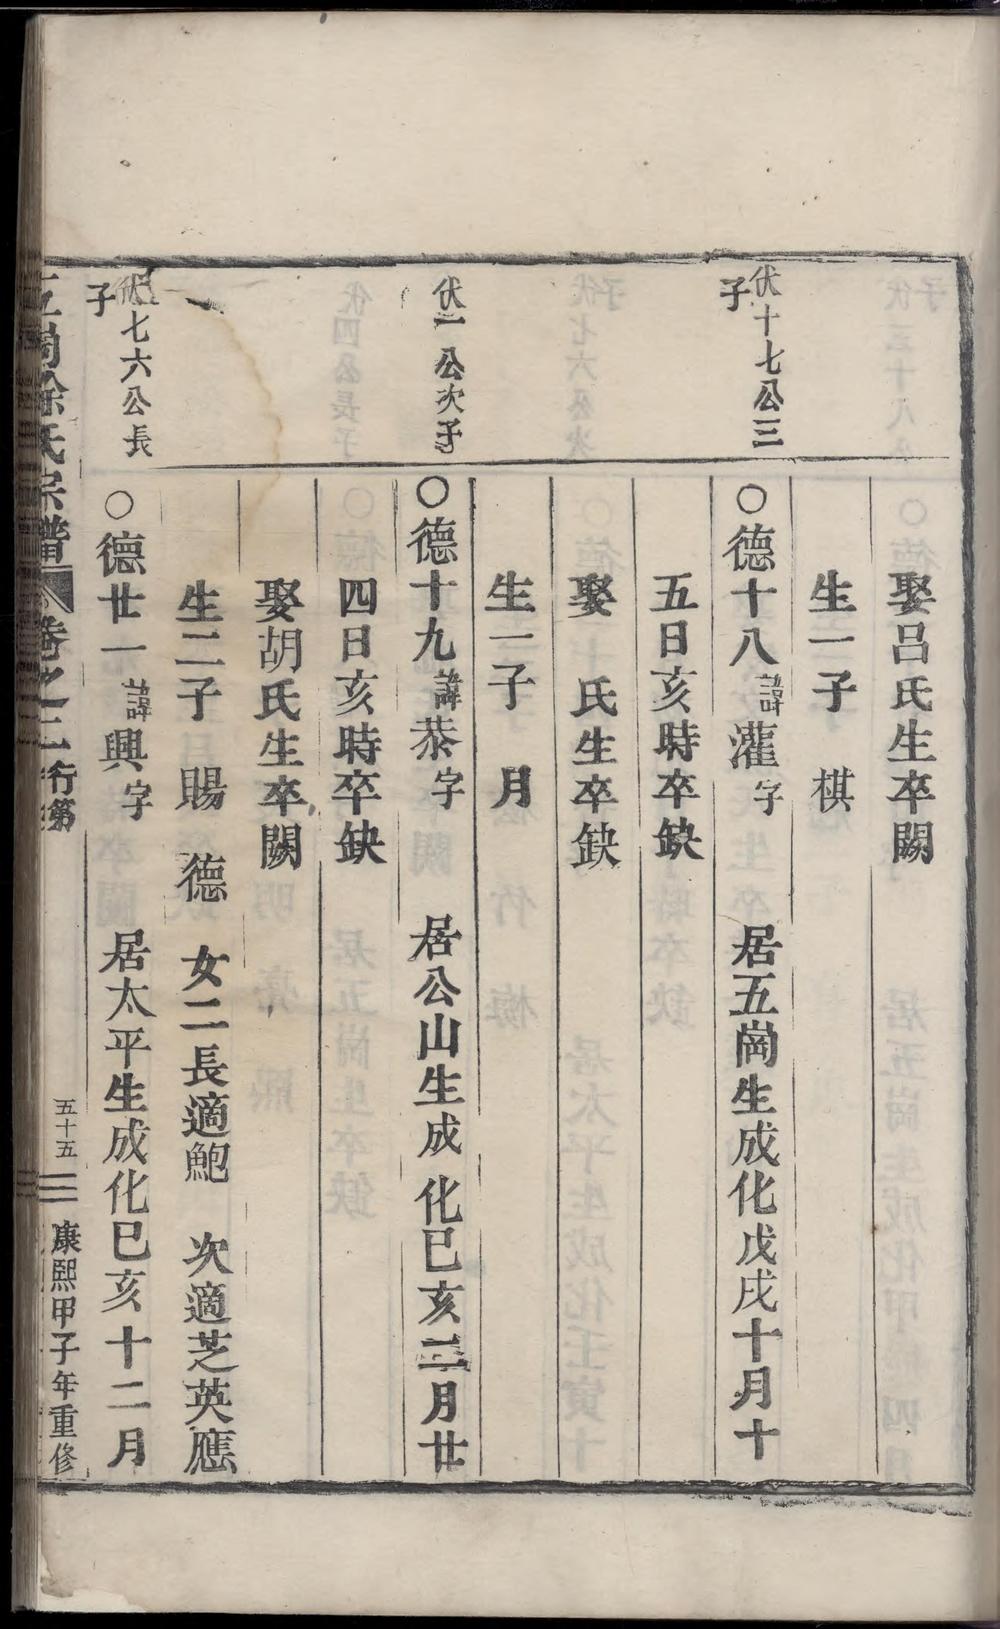 娶呂氏生卒闕
生一子　棋
伏十七公三子
○德十八諱灌字　居五崗生成化戊戌十月十
五日亥時卒缺
娶　氏生卒缺
生一子　月
伏一公次子
○德十九諱恭字　居公山生成化巳亥三月廿
四日亥時卒缺
娶胡氏生卒闕
生二子　賜　德　女二長適鮑　次適芝英應
伏七六公長子
○德廿一諱興字　居太平生成化巳亥十二月
五崗徐氏宗譜　卷之二　行第　五十五　康熙甲子年重修